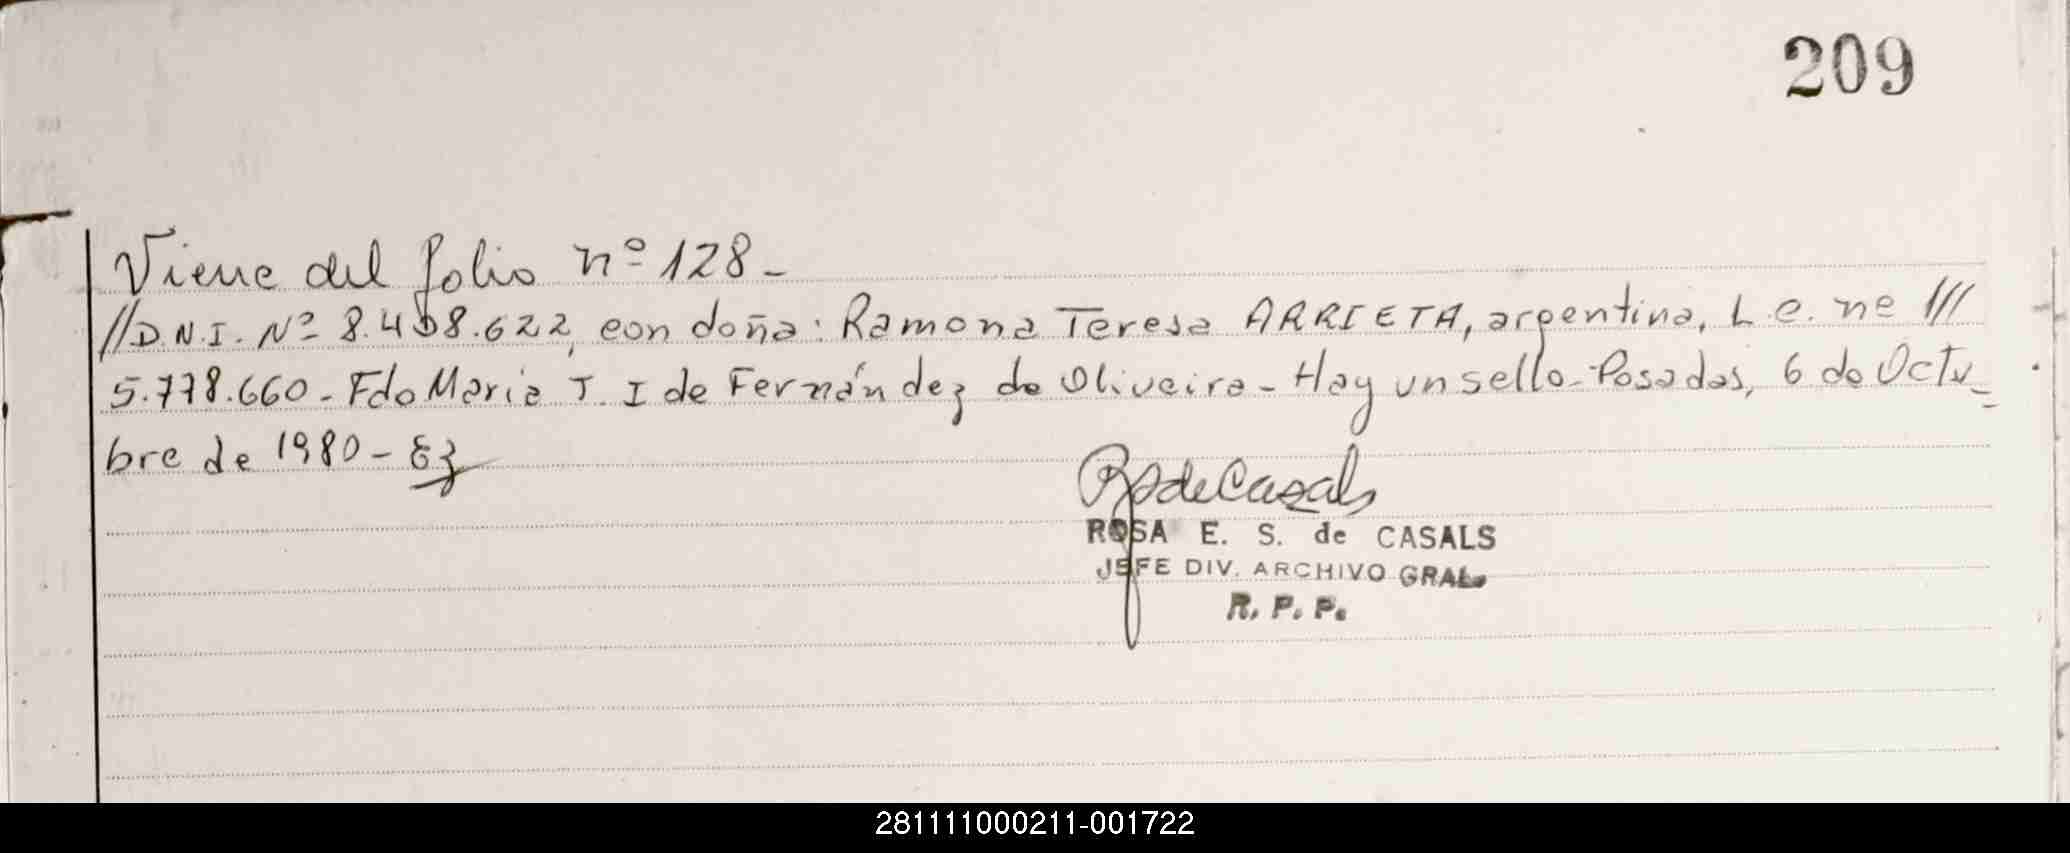 209
Viene del folio nº 128-
//D.N.I. Nº 8.408.622, con doña: Ramona Teresa ARRIETA, argentina, L.C. nº ///
5.778.660- Fdo Maria T. I de Fernández de Oliveira- Hay un sello- Posadas, 6 de Octu_
bre de 1980-
ROSA E. S. de CASALS
JEFE DIV. ARCHIVO GRAL.
R. P. P.
281111000211-001722